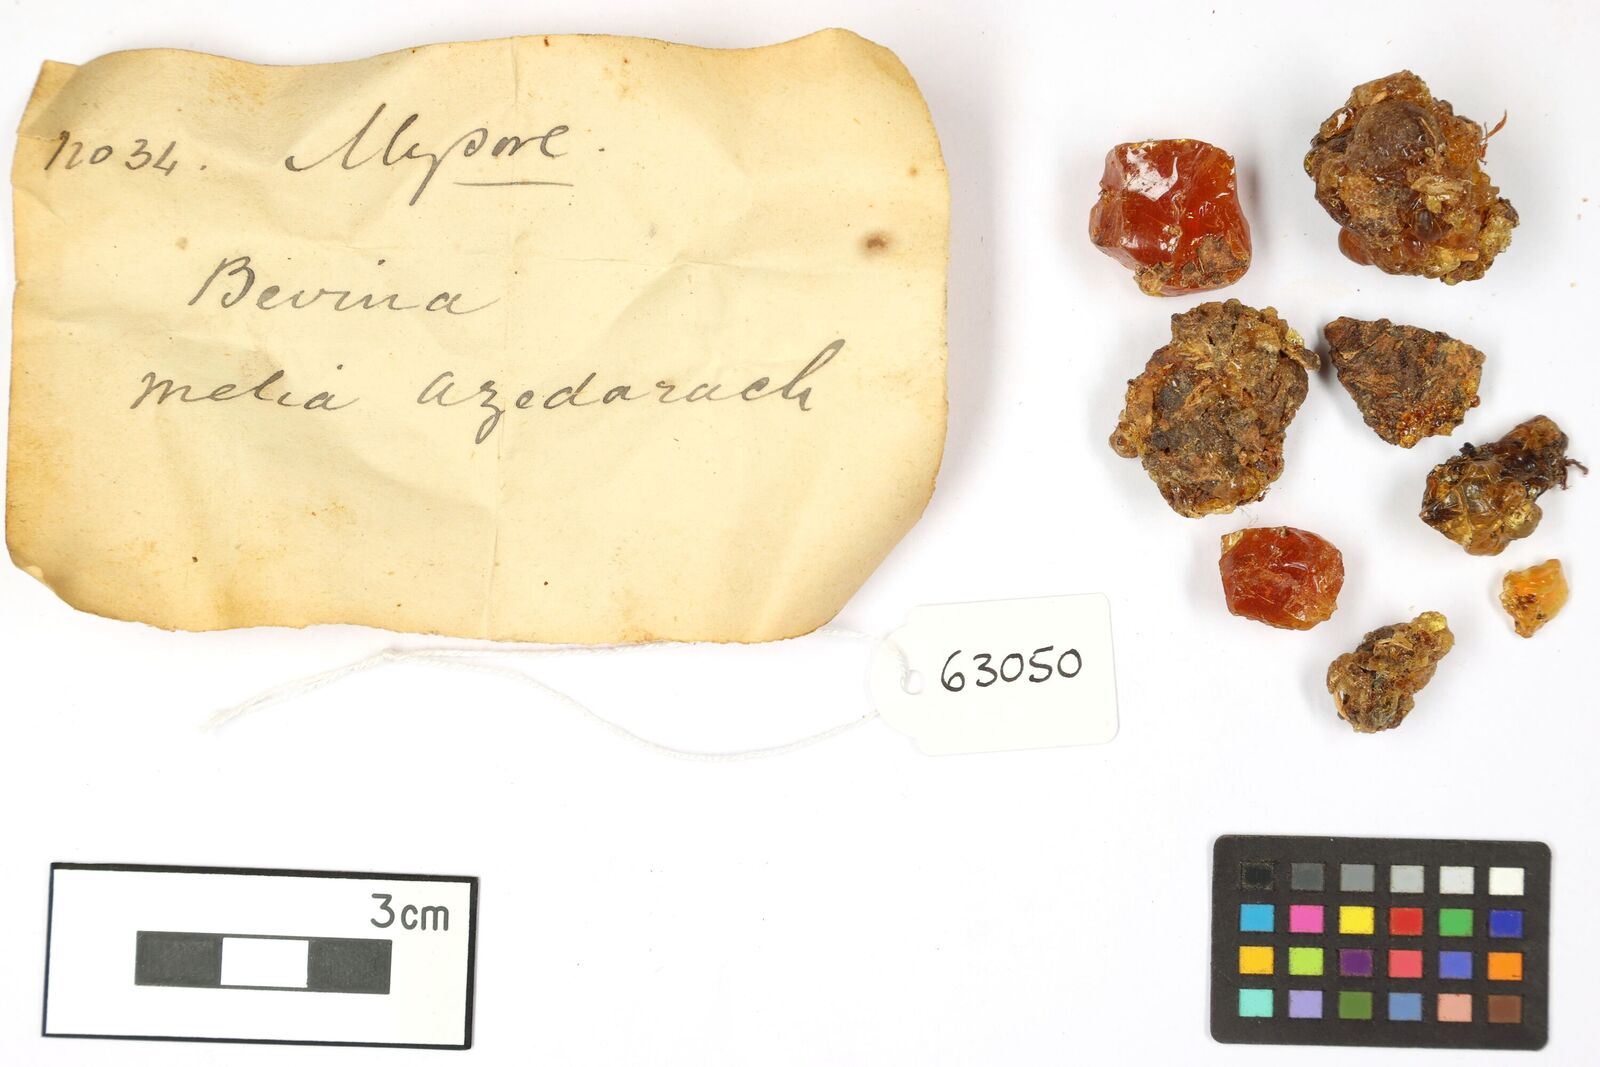 No 34. Mysore.
Bevina
Melia azedarach
63050
3cm